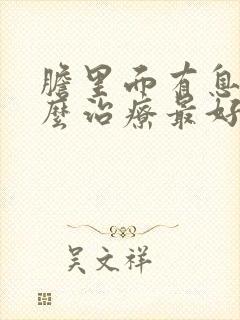 膽里而有息
麼治療最好
吴文祥